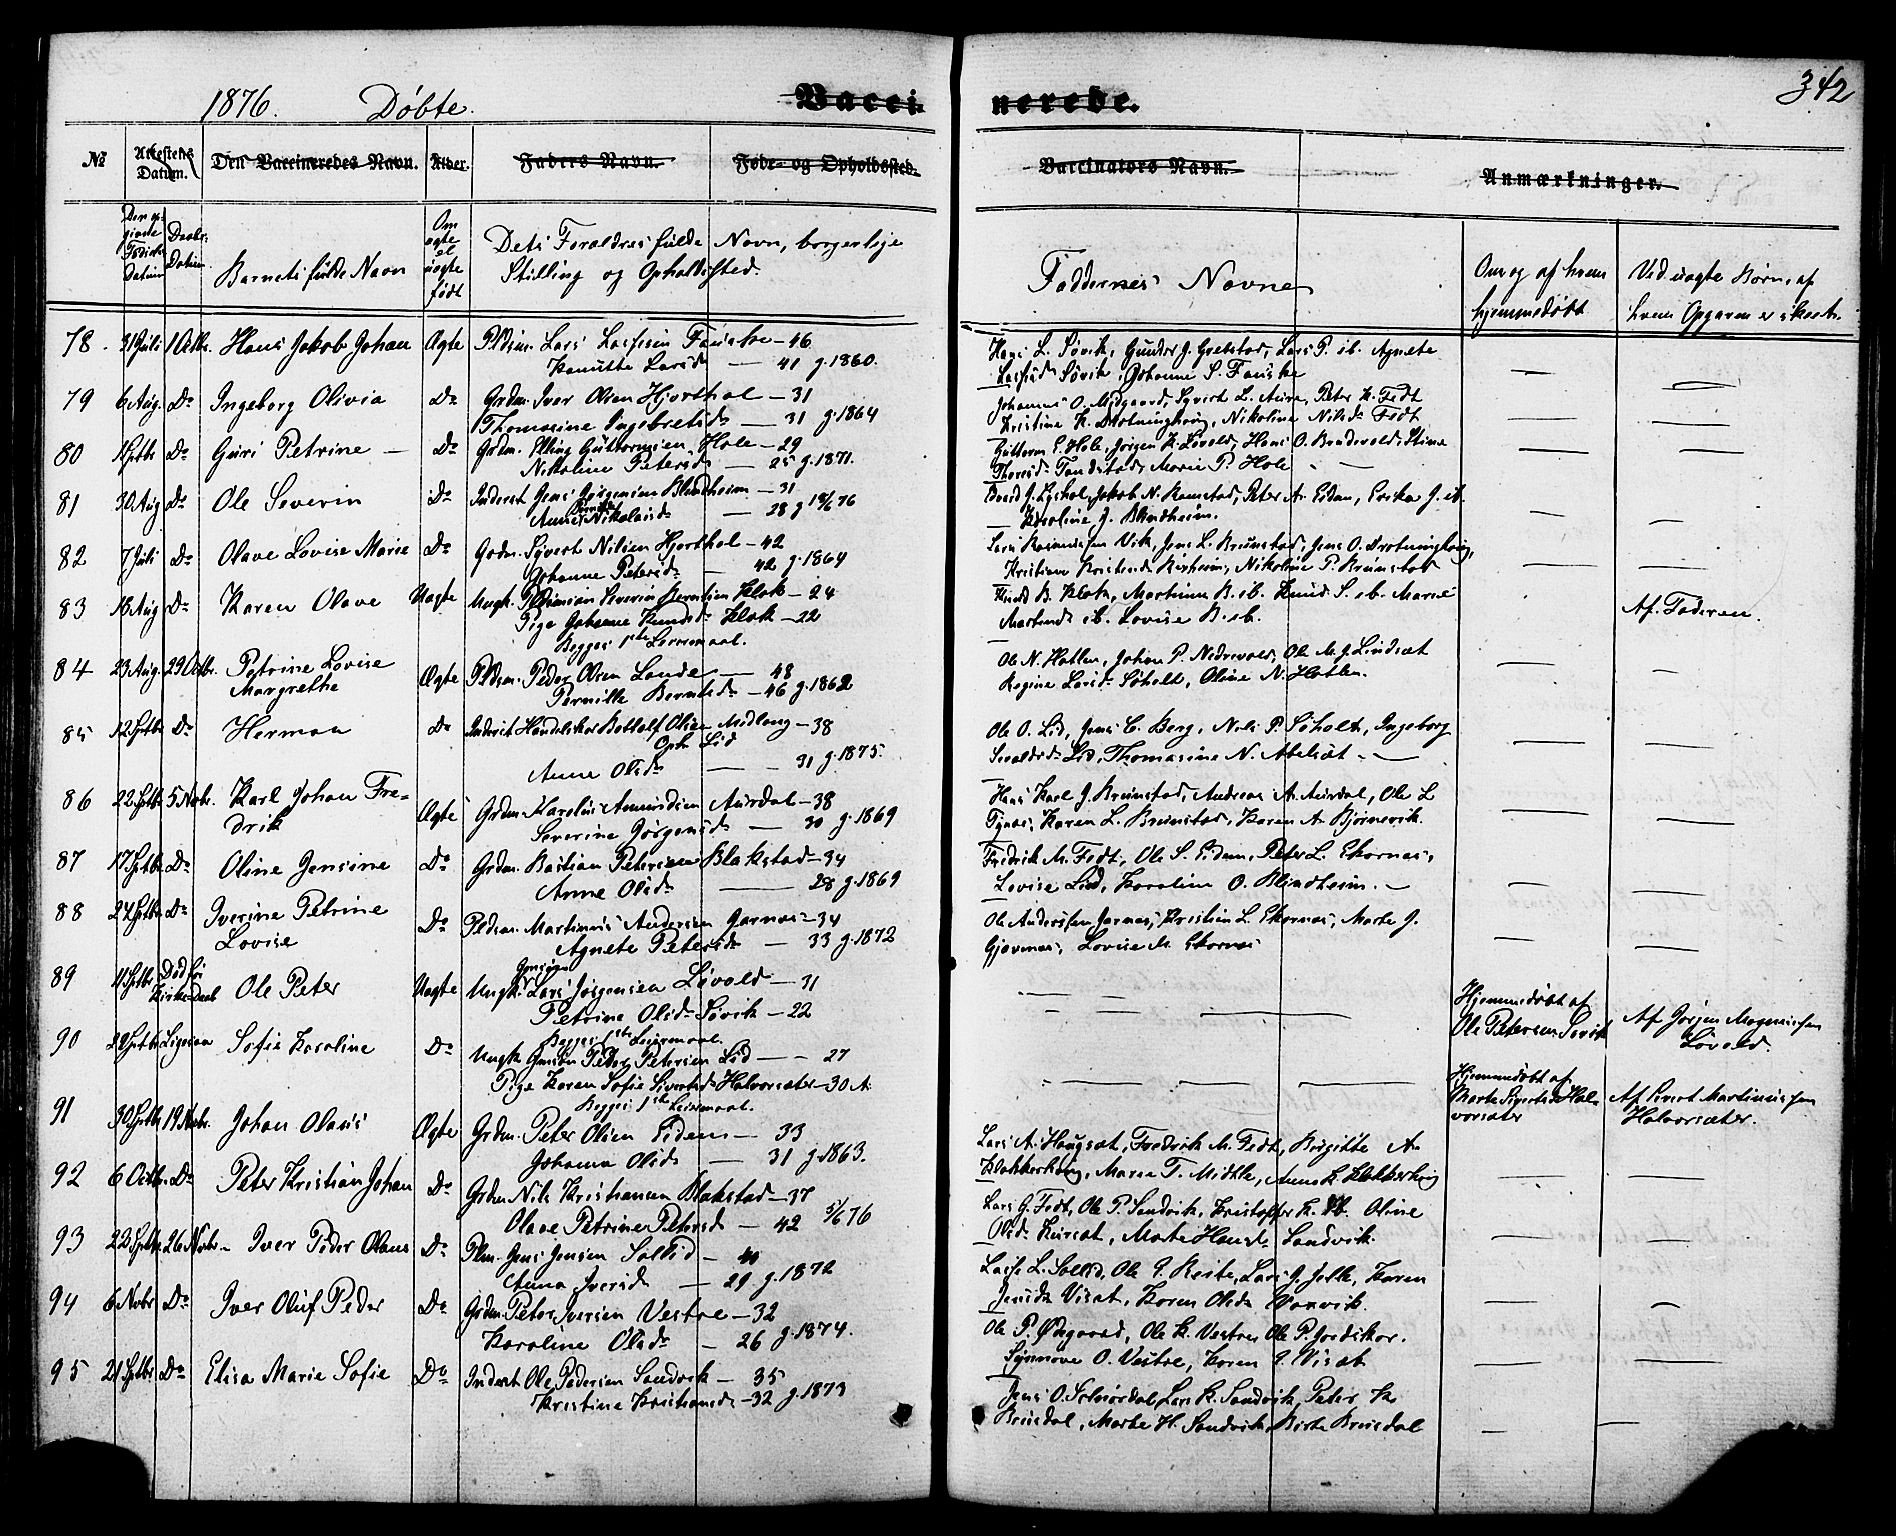 1876. Døbte.
Vacci- nerede.
342
№
Attestens Datum.
Den Vaccineredes Navn.
Alder.
Faders Navn.
Føde- og Opholdssted.
Vaccinators Navn.
Anmærkninger.
Den opgivne Fødsels Datum
Daabs Datum
Barnets fulde Navn
Om ægte el uægte født
Dets Foraldres fulde Navn, borgerlige
Stilling og Opholdssted.
Faddernes Navne
Om og af hvem hjemmedøbt
Ved uægte Børn, af hvem Opgaven er skeet.
78. 31 Juli 1 Octbr. Hans Jakob Johan Ægte Pldsm. Lars Lassesen Fauske — 46
Knutte Larsd — 41 g. 1860.
Hans L. Søvik, Gunder J. Grebstad, Lars P. ib. Agnete
Søvik, Johanne S. Fauske
79 6 Aug. Do Ingeborg Olivia Do Grdm. Iver Olsen Hjorthol — 31
Thomasine Ingebretsd — 31 g. 1864
Johannes O. Midgaard, Syvert L. Aure, Peter K. Fedt
Kristine K. Drotninghoug, Nikoline Nilsd Fedt
80 1 Sptbr Do Guri Petrine — Do Grdm. Elling Guttormsen Hole — 29
Nikoline Petersd — 25 g. 1871.
Guttorm E. Hole, Jørgen K. Løvold, Hans O. Brudevold, Stina
Tandstad, Marie P. Hole
81 30 Aug Do Ole Severin Do Inderst Jens Jørgensen Blindheim — 31
Anne Nikolaisd — 28 g 18/6 76
J. Lyshol, Jakob N. Ramstad, Peter A. Eidem, Erika J. ib.
Karoline J. Blindheim.
82 7 Juli Do Olave Lovise Marie Do Grdm. Syvert Nilsen Hjorthol — 42
Johanne Petersd — 42 g. 1864
Lars Rasmussen Vik, Jens L. Brunstad, Jens O. Drotninghoug,
Kristiane Nikoline P. Brunstad
83 18 Aug Do Karen Olave Uægte Ungk. Severin Berntsen Klok — 24
Pige Johanne Knudsd Klok — 22
Begges 1ste Leiermaal.
Knud B. Klok, Martinus B. ib. Knud S. ib. Marie
Martensd ib. Lovise B. ib.
Af Faderen.
84 23 Aug. 29 Octbr. Petrine Lovise
Margrethe Ægte Pldsm. Peder Olsen Lande — 48
Pernille Berntsd — 46 g. 1862
Ole N. Hatlen, Johan P. Nedrevold, Ole M. J. Lindsæt
Regine Larsd Søholt, Oline N. Hatlen.
85 12 Sptbr Do Herman Do Inderst Handelskar Bottolf Olsen Midlang — 38
Oph. Lid
Anne Olsd — 31 g. 1875.
Ole O. Lid, Jens C. Berg, Nils P. Søholt, Ingeborg
Lid, Thomasine N. Abelsæt
86 22 Sptbr 5 Novbr. Karl Johan Fre-
drik Ægte Grdm. Karolus Amundsen Aurdal — 38
Severine Jørgensd — 30 g. 1869
Hans Karl J. Brunstad, Andreas A. Aurdal, Ole L
Tynes, Karen L. Brunstad, Karen A. Bjørnevik.
87 17 Sptbr Do Oline Jensine Do Grdm. Bastian Petersen Blakstad — 34
Anne Olsd — 28 g. 1869
Fredrik M. Fedt, Ole S. Eidem, Peter L. Ekornæs,
Lovise Lid, Karoline O. Blindheim.
88 27 Sptbr Do Iverine Petrine
Lovise Do Pldsm. Martinus Andersen Jarnæs — 34
Agnete Petersd — 33 g. 1872
Ole Anderssen Jarnæs, Kristian L. Ekornæs, Marte J.
Gjævenes, Lovise M. Ekornæs
89 11 Sptbr Død før Kirke-Daab Ole Peter Uægte Ungk. Lars Jørgensen Løvold — 31
Petrine Olsd Søvik — 22
Begges 1ste Leiermaal.
Hjemmedøbt af
Ole Petersen Søvik
Af Jørgen Mogensen
Løvold.
90 22 Sptbr Ligesaa Sofie Karoline Do Ungk. Peder Petersen Lid — 27
Pige Karen Sofie Sivertsd Halvorsæter — 30 A.
Begges 1ste Leiermaal.
Hjemmedøbt af
Marte Sivertsd Hal-
vorsæter
Af Sivert Martinussen
Halvorsæter.
91 30 Sptbr 19 Novbr. Johan Olaus Ægte Grdm. Peter Olsen Eidem — 33
Johanna Olsd — 31 g. 1863.
Lars A. Haugsæt, Fredrik M. Fedt, Birgitte A.
Klokkerhoug, Maren T. Midtlie, Anne K. Klokkerhoug
92 6 Octbr. Do Peter Kristian Johan Do Grdm Nils Kristiansen Blakstad — 37
Olave Petrine Petersd — 42 5/6 76
Lars G. Fedt, Ole P. Sandvik, Kristoffer K. ib. Oline
Olsd Kursæt, Marte Hansd Sandvik.
93 22 Sptbr. 26 Novbr. Iver Peder Olaus Do Plm. Jens Jensen Sollid — 40
Anna Iversd — 29 g. 1872
Lasse L. Sollid, Ole J. Reite, Lars J. Jelle, Karen
Jensd Visæt, Karen Olsd Vaxvik.
94 6 Novbr Do Iver Oluf Peder Do Grdm. Peter Iversen Vestre — 32
Karoline Olsd — 26 g. 1874.
Ole P. Ødegaard, Ole K. Vestre, Ole P. Jordskar.
Synnøve O. Vestre, Karen J. Visæt
95 21 Sptbr Do Elisa Marie Sofie Do Inderst Ole Pedersen Sandvik — 35
Kristine Kristiansd — 32 g. 1873
Jens O. Solnørdal, Lars K. Sandvik, Peter K.
Brusdal, Marte H. Sandvik, Birte Brusdal